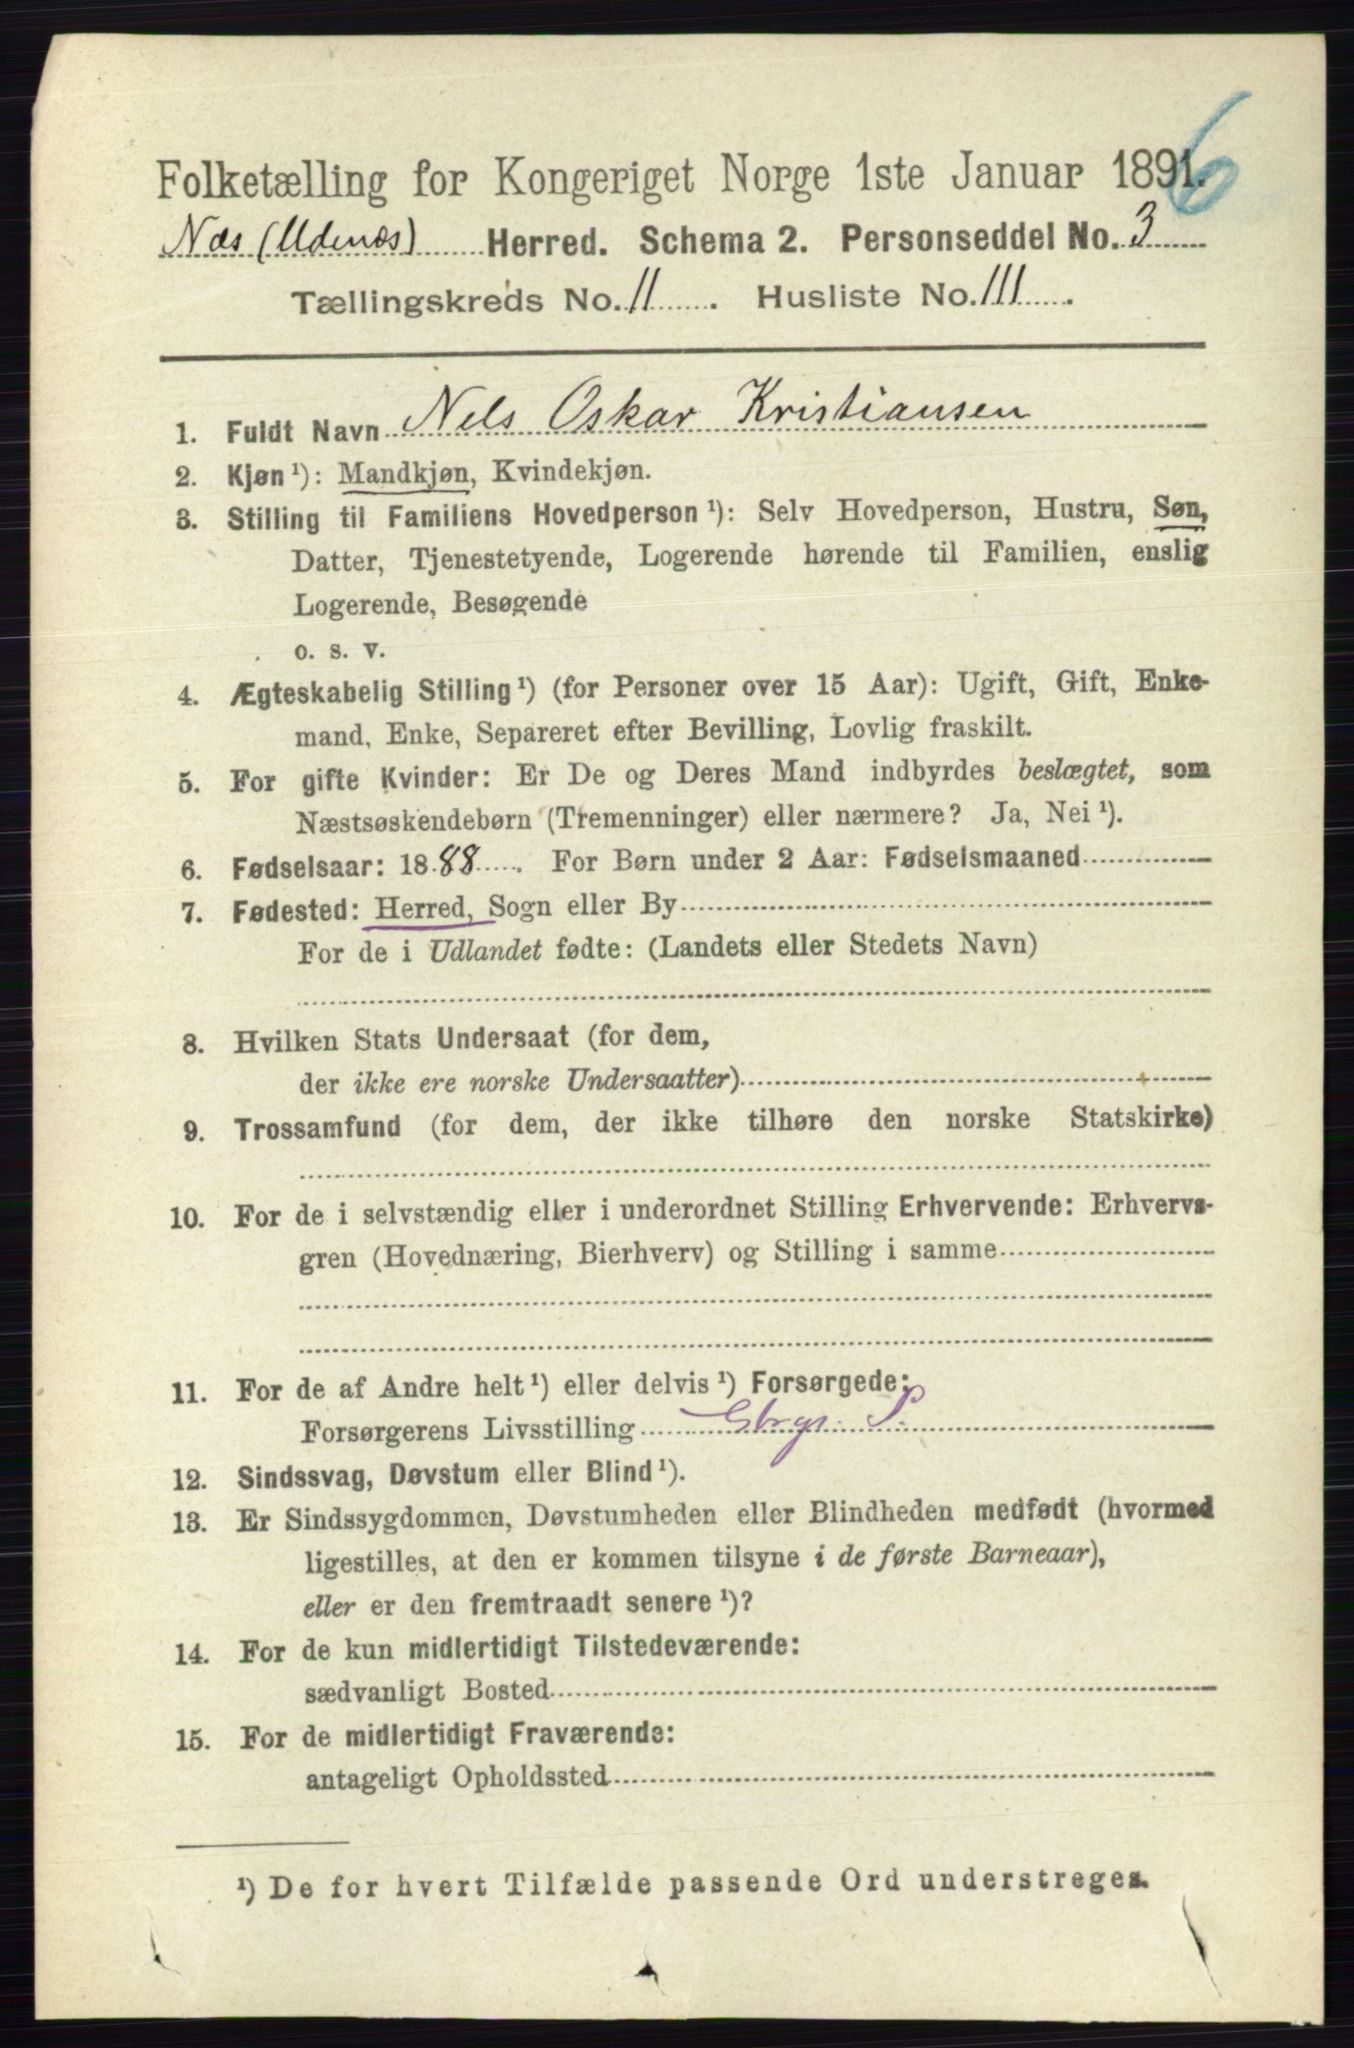 6
Folketælling for Kongeriget Norge 1ste Januar 1891.
Næs (Udenæs) Herred. Schema 2. Personseddel No. 3
Tællingskreds No. 11. Husliste No. 111.
1. Fuldt Navn Nels Oskar Kristiansen
2. Kjøn ¹): Mandkjøn, Kvindekjøn.
3. Stilling til Familiens Hovedperson ¹): Selv Hovedperson, Hustru, Søn,
Datter, Tjenestetyende, Logerende hørende til Familien, enslig
Logerende, Besøgende
o. s. v.
4. Ægteskabelig Stilling ¹) (for Personer over 15 Aar): Ugift, Gift, Enke-
mand, Enke, Separeret efter Bevilling, Lovlig fraskilt.
5. For gifte Kvinder: Er De og Deres Mand indbyrdes beslægtet, som
Næstsøskendebørn (Tremenninger) eller nærmere? Ja, Nei ¹).
6. Fødselsaar: 1888. For Børn under 2 Aar: Fødselsmaaned
7. Fødested: Herred, Sogn eller By
For de i Udlandet fødte: (Landets eller Stedets Navn)
8. Hvilken Stats Undersaat (for dem,
der ikke ere norske Undersaatter)
9. Trossamfund (for dem, der ikke tilhøre den norske Statskirke)
10. For de i selvstændig eller i underordnet Stilling Erhvervende: Erhvervs-
gren (Hovednæring, Bierhverv) og Stilling i samme
11. For de af Andre helt ¹) eller delvis ¹) Forsørgede:
Forsørgerens Livsstilling Gbrgr. S.
12. Sindssvag, Døvstum eller Blind ¹).
13. Er Sindssygdommen, Døvstumheden eller Blindheden medfødt (hvormed
ligestilles, at den er kommen tilsyne i de første Barneaar),
eller er den fremtraadt senere ¹)?
14. For de kun midlertidigt Tilstedeværende:
sædvanligt Bosted
15. For de midlertidigt Fraværende:
antageligt Opholdssted
¹) De for hvert Tilfælde passende Ord understreges.